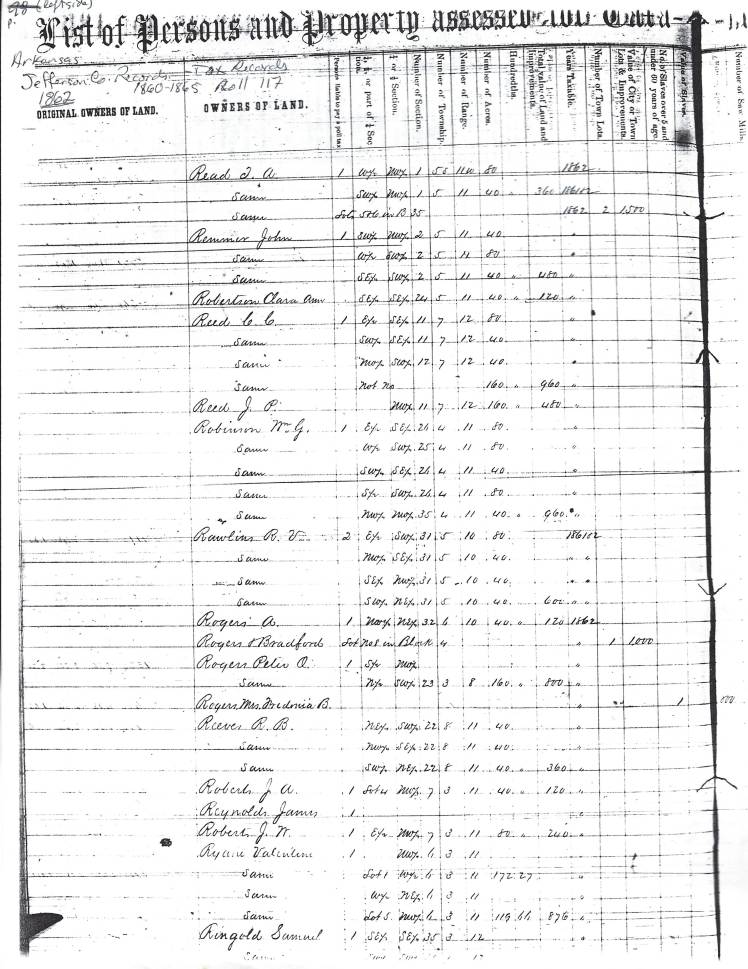 98 (left side)
p.
List of Persons and Property assessed for
Arkansas
Jefferson Co. Records Tax Records
1860-1865 Roll 117
1862
ORIGINAL OWNERS OF LAND. OWNERS OF LAND. Persons liable to pay a poll tax. ½, ¼, or part of ¼ Section. ¼ or ½ Section. Number of Section. Number of Township. Number of Range. Number of Acres. Hundredths. Total value of Land and Improvements. Years Taxable. Number of Town Lots. Value of City or Town Lots & Improvements. No. of Slaves over 5 and under 60 years of age. Value of Slaves. Number of Saw Mills.
Read 1 W½ NW¼ 1 5S 11W 80 1862
Same SW¼ NW¼ 1 5 11 40 " 360
Same Lots in B 35 1862 2 1500
Remmer John 1 SW¼ NW¼ 2 5 11 40 "
Same W½ SW¼ 2 5 11 80 "
Same SE¼ SW¼ 2 5 11 40 " 480 "
Robertson Clara Ann SE¼ SE¼ 24 5 11 40 " 120 "
Reed C. C. 1 E½ SE¼ 11 7 12 80 "
Same SW¼ SE¼ 11 7 12 40 "
Same NW¼ SW¼ 12 7 12 40 "
Same Not no 160 " 960 "
Reed J. P. NW¼ 11 7 12 160 " 480 "
Robinson Wm G. 1 E½ SE¼ 26 4 11 80 "
Same W½ SW¼ 25 4 11 80 "
Same SW¼ SE¼ 26 4 11 40 "
Same S½ SW¼ 26 4 11 80 "
Same NW¼ NW¼ 35 4 11 40 " 960 "
Rawlins R. V. 2 E½ SW¼ 31 5 10 80
Same NW¼ SE¼ 31 5 10 40 " "
Same SE¼ NW¼ 31 5 10 40 " "
Same SW¼ NE¼ 31 5 10 40 600 " "
Rogers A. 1 NE¼ 32 6 10 40 " 120 1862
Rogers & Bradford Lot No 8 in Block 4 " 1 1000
Rogers Peter O. 1 S½ NW¼ "
Same N½ SW¼ 23 3 8 160 " 800 "
Rogers Mrs. Fredonia B. " 1
Reeves R. B. NE¼ SW¼ 22 8 11 40
Same NW¼ SE¼ 22 8 11 40
Same SW¼ NE¼ 22 8 11 40 " 360 "
Roberts J A. 1 Lot 4 NW¼ 7 3 11 40 " 120 "
Reynolds James 1
Roberts J. W. 1 E½ NW¼ 7 3 11 80 " 240 "
Valentine 1 NW¼ 6 3 11
Same Lot 1 W½ 6 3 11 172 27
Same W½ NE¼ 6 3 11
Same Lot 5 NW¼ 6 3 11 119 66 876 "
Ringold Samuel 1 SE¼ SE¼ 35 3 12 "